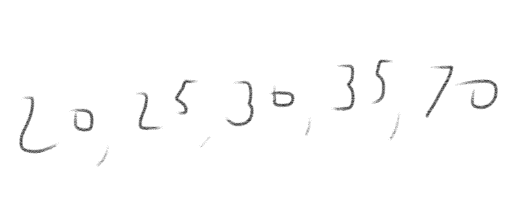 20, 25, 30, 35, 70